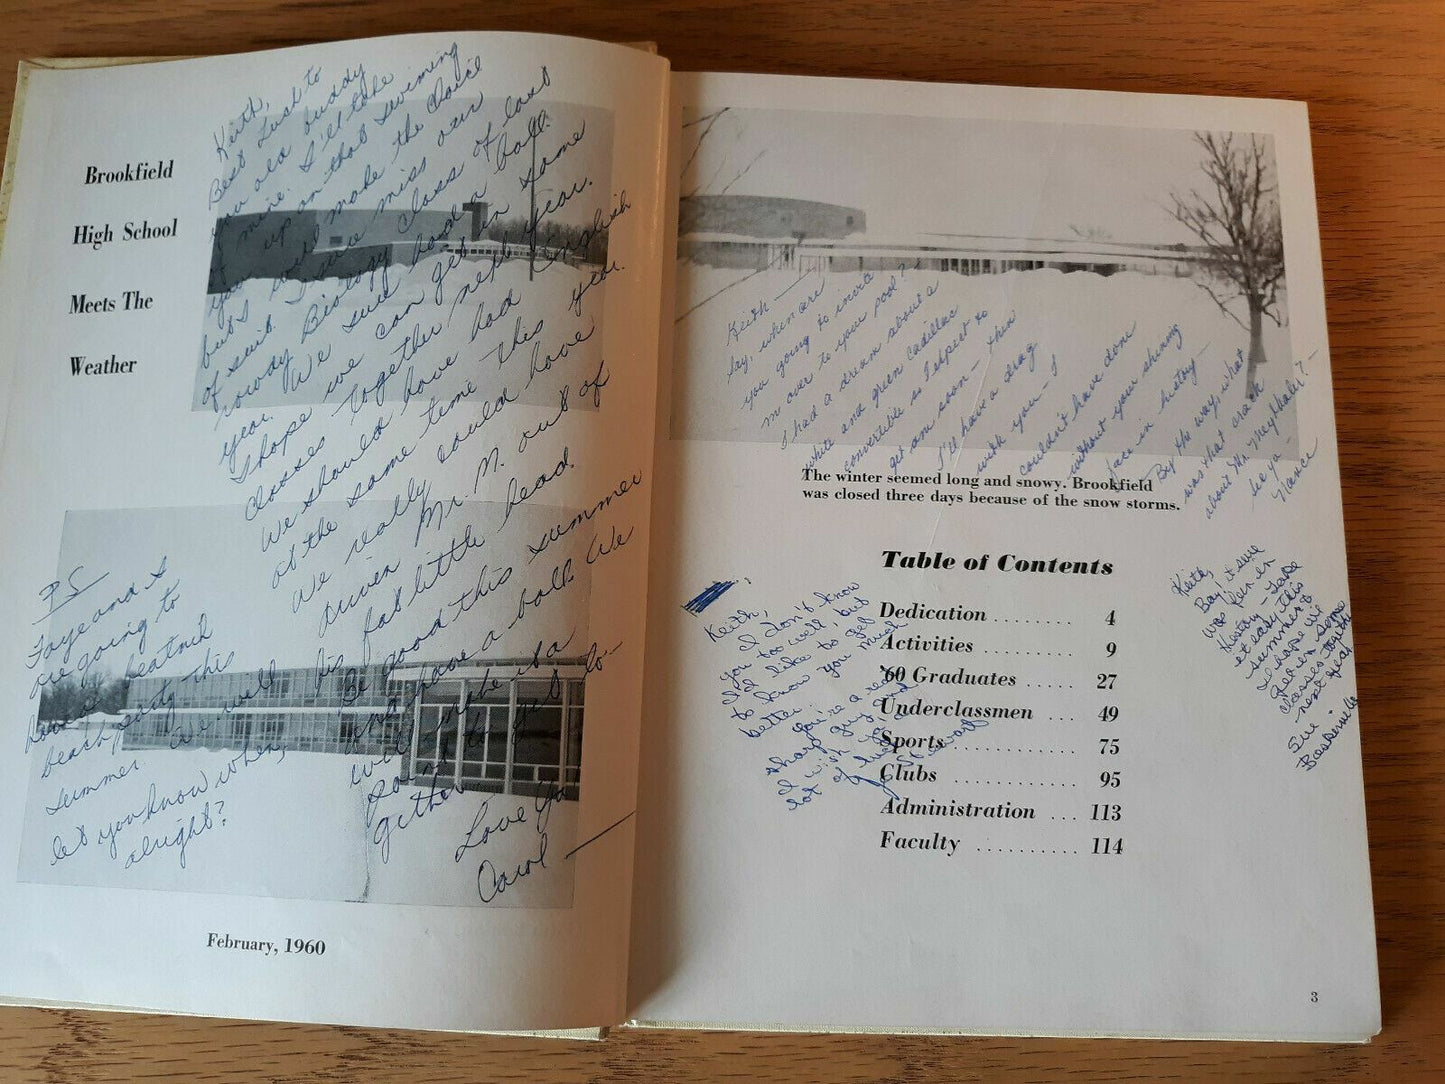 Brookfield
High School
Meets The
Weather
Keith,
Best Lush to
you old buddy
of mine. I'll take
you up on that swiming
but I will make the choice
of suit. I sure miss our
rowdy Biology class of last
year. We sure had a ball.
I hope we can get in some
classes together next year.
We should have had English
at the same time this year.
We really could have
driven Mr. M. out of
his fat little head.
Be good this summer
and have a ball. We
will make it a
point to get to-
gether
Love Ya
Carol
PS
Faye and I
are going to
have a beatnick
beach party this
summer. We will
let you know when,
alright?
February, 1960
Keith —
Say, when are
you going to invite
me over to your pool?
I had a dream about a
white and green Cadillac
convertible as I expect to
get one soon — then
I'll have a drag
with you — I
couldn't have done
without your shining
face in history —
By the way, what
was that crack
about Mr. Maythaler? —
See ya —
Nance
The winter seemed long and snowy. Brookfield
was closed three days because of the snow storms.
Table of Contents
Dedication ........ 4
Activities ......... 9
'60 Graduates ..... 27
Underclassmen ... 49
Sports ............ 75
Clubs ............ 95
Administration ... 113
Faculty .......... 114
Keith,
I don't know
you too well, but
I'd like to get
to know you much
better.
You're a real
sharp guy, and
I wish you a
lot of luck
Jo Stewart
Keith,
Boy, it sure
was fun in
History — Take
it easy this
summer &
I hope we
get in some
classes together
next year.
Sue
Baskerville
3